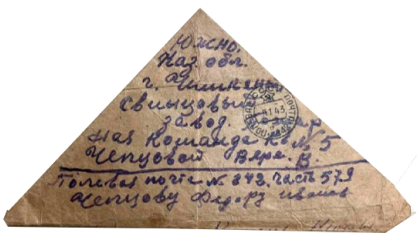 Южно.
Каз. обл.
г. Чимкент
Свинцовый
завод
ная Команда № 5
Чепцовой Вере. В.
Полевая почта № 842. часть 579
Чепцову Федору Иванов